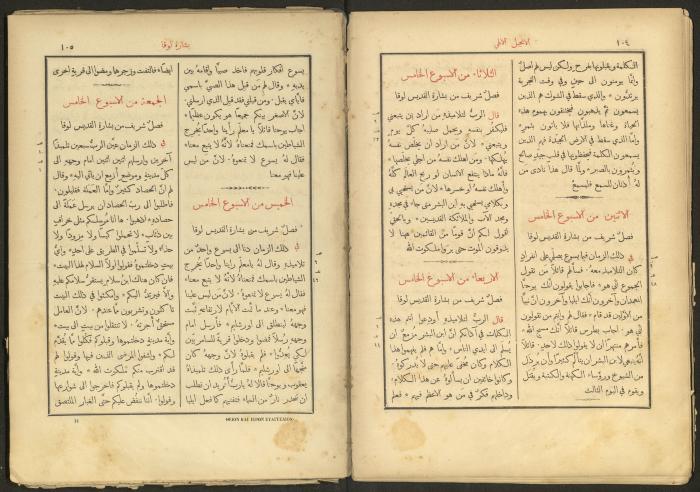 ١٠٤
الانجيل الالهي
الكلمة ويقبلونها بفرح ولكن ليس لهم اصلٌ
وانَّما يومنون الى حينٍ وفي وقت التجربة
يرتدُّون * والذي سقط في الشوك هم الذين
يسمعون ثمَّ يذهبون فيختنقون بهموم هذه
الحياة وغناها وملذَّاتها فلا ياتون بثمرٍ *
وامَّا الذي سقط في الارض الجيّدة فهم الذين
يسمعون الكلمة فيحفظونها في قلبٍ جيّدٍ صالحٍ
ويُثمِرون بالصبر * ولمَّا قال هذا نادى من
لهُ أُذنان للسمع فليسمع *
الاثنين من الاسبوع الخامس
فصلٌ شريف من بشارة القديس لوقا
في ذلك الزمان فيما يسوع يصلّي على انفرادٍ
كان التلاميذ معهُ * فسألهم قائلاً من تقول
الجموع اني هو * فاجابوا يقولون انك يوحنَّا
المعمدان وآخرون أنك ايليَّا وآخرون انَّ نبيًّا
من الاوَّلين قد قام * فقال لهم وانتم من تقولون
اني هو * اجاب بطرس قائلاً أنك مسيح الله *
فأمرهم منتهرًا ان لا يقولوا ذلك لاحدٍ * قائلاً
انَّهُ ينبغي لابن البشر ان يتألَّم كثيرًا وأن يُرذَل
من الشيوخ ورؤساء الكهنة والكتبة ويُقتَل
ويقوم في اليوم الثالث
الثلاثاء من الاسبوع الخامس
فصلٌ شريف من بشارة القديس لوقا
قال الربُّ لتلاميذهِ من اراد ان يتبعني
فليكفر بنفسهِ ويحمل صليبهُ كلَّ يومٍ
ويتبعني * لانَّ من اراد ان يخلّص نفسهُ
يهلكها * ومن اهلك نفسهُ من اجلي يخلّصها *
فانَّهُ ماذا ينفع الانسان لو ربح العالم كلَّهُ
وأهلك نفسهُ او خسرها * لانَّ من يستحي بي
وبكلامي يستحي بهِ ابن البشر متى جاء في مجدهِ
ومجد الآب والملائكة القديسين * وبالحقّ
اقول لكم انَّ قومًا من القائمين ههنا لا
يذوقون الموت حتى يروا ملكوت الله
الاربعاء من الاسبوع الخامس
فصلٌ شريف من بشارة القديس لوقا
قال الربُّ لتلاميذهِ أَودعوا انتم هذه
الكلمات في آذانكم انَّ ابن البشر مُزمِعٌ ان
يسلَّم الى ايدي الناس * وامَّا هم فلم يفهموا هذا
الكلام وكان مخفًى عليهم حتى لا يُدركوهُ *
وكانوا خائفين ان يسألوهُ عن هذا الكلام *
وداخلهم فكرٌ في من هو الاعظم فيهم * فعلم
بشارة لوقا
١٠٥
يسوع افكار قلوبهم فأخذ صبيًّا وأقامهُ بين
يديهِ * وقال لهم من قبل هذا الصبي باسمي
فايَّاي يقبل * ومن قبلني فقد قبل الذي ارسلني *
لانَّ الاصغر بينكم جميعًا هو يكون عظيمًا *
اجاب يوحنا قائلاً يا معلّم رأينا واحدًا يُخرِج
الشياطين باسمك فمنعناهُ لانَّهُ لا يتبع معنا *
فقال لهُ يسوع لا تمنعوهُ * لانَّ من ليس
علينا فهو معنا
الخميس من الاسبوع الخامس
فصلٌ شريف من بشارة القديس لوقا
في ذلك الزمان دنا الى يسوع واحدٌ من
تلاميذهِ وقال لهُ يا معلّم رأينا واحدًا يُخرِج
الشياطين باسمك فمنعناهُ لانَّهُ لا يتبع معنا *
فقال لهُ يسوع لا تمنعوهُ * لانَّ من ليس علينا
فهو معنا * وعند ما تمَّت الأيَّام لارتفاعهِ ثبَّت
وجههُ لينطلق الى اورشليم * فأرسل امام
وجههِ رُسلاً فمضوا ودخلوا قريةً للسامريّين
لكي يُعِدُّوا لهُ * فلم يقبلوهُ لانَّ وجههُ كان
متَّجهًا الى اورشليم * فلمَّا رأى ذلك تلميذاهُ
يعقوب ويوحنَّا قالا لهُ يا ربُّ أتريد ان نطلب
ان تنحدر نارٌ من السماء فتفنيهم كما فعل ايليا
ايضًا * فالتفت وزجرها ومضوا الى قريةٍ اخرى
الجمعة من الاسبوع الخامس
فصلٌ شريف من بشارة القديس لوقا
في ذلك الزمان عيَّن الربُّ سبعين تلميذًا
آخرين وارسلهم اثنين اثنين امام وجههِ الى
كلّ مدينةٍ وموضعٍ أزمع ان يأتي اليهِ * وقال
لهم انَّ الحصاد كثيرٌ وامَّا العملة فقليلون *
فاطلبوا الى ربّ الحصاد ان يرسل عملةً الى
حصادهِ * اذهبوا * ها انا مُرسلكم مثل خرافٍ
بين ذئابٍ * لا تحملوا كيسًا ولا مِزودًا ولا
حذاءً * ولا تسلّموا في الطريق على احدٍ * وايُّ
بيتٍ دخلتموهُ فقولوا اوَّلاً السلام لهذا البيت *
فان كان هناك ابن سلامٍ يستقرُّ سلامكم عليهِ
والَّا فيرتدُّ اليكم * وامكثوا في ذلك البيت
تاكلون وتشربون ممَّا عندهم * لانَّ العامل
مستحقٌّ اجرتهُ * لا تنتقلوا من بيتٍ الى بيت *
وأيَّة مدينةٍ دخلتموها وقبلوكم فكلوا ممَّا يقدَّم
لكم * واشفوا المرضى الذين فيها وقولوا لهم
قد اقترب منكم ملكوت الله * وأيَّة مدينةٍ
دخلتموها ولم يقبلوكم فاخرجوا الى شوارعها
وقولوا * أننا ننفض عليكم حتى الغبار الملتصق
14
ΘΕΙΟΝ ΚΑΙ ΙΕΡΟΝ ΕΥΑΓΓΕΛΙΟΝ